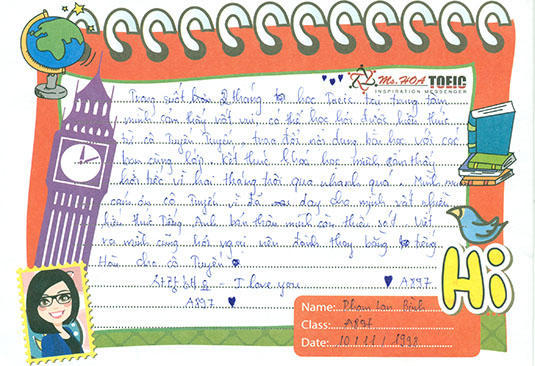 Ms. HOA TOEIC
INSPIRATION MESSENGER
Trong suốt hơn 2 tháng học Toeic tại trung tâm
mình cảm thấy rất vui, có thể học hỏi được kiến thức
từ cô Tuyến Tuyến, trao đổi nội dung bài học với các
bạn cùng lớp. Kết thúc khóa học mình cảm thấy
hơi tiếc vì hai tháng trôi qua nhanh quá. Mình
cảm ơn cô Tuyến vì đã dạy cho mình rất nhiều
kiến thức Tiếng Anh
ra mình cũng hơi ngại nên đành thay bằng tiếng
Hàn cho cô Tuyến
사랑해요 - I love you
A897 A897
Hi
Name: Phạm Lan Bình
Class: A897
Date: 10/11/1998